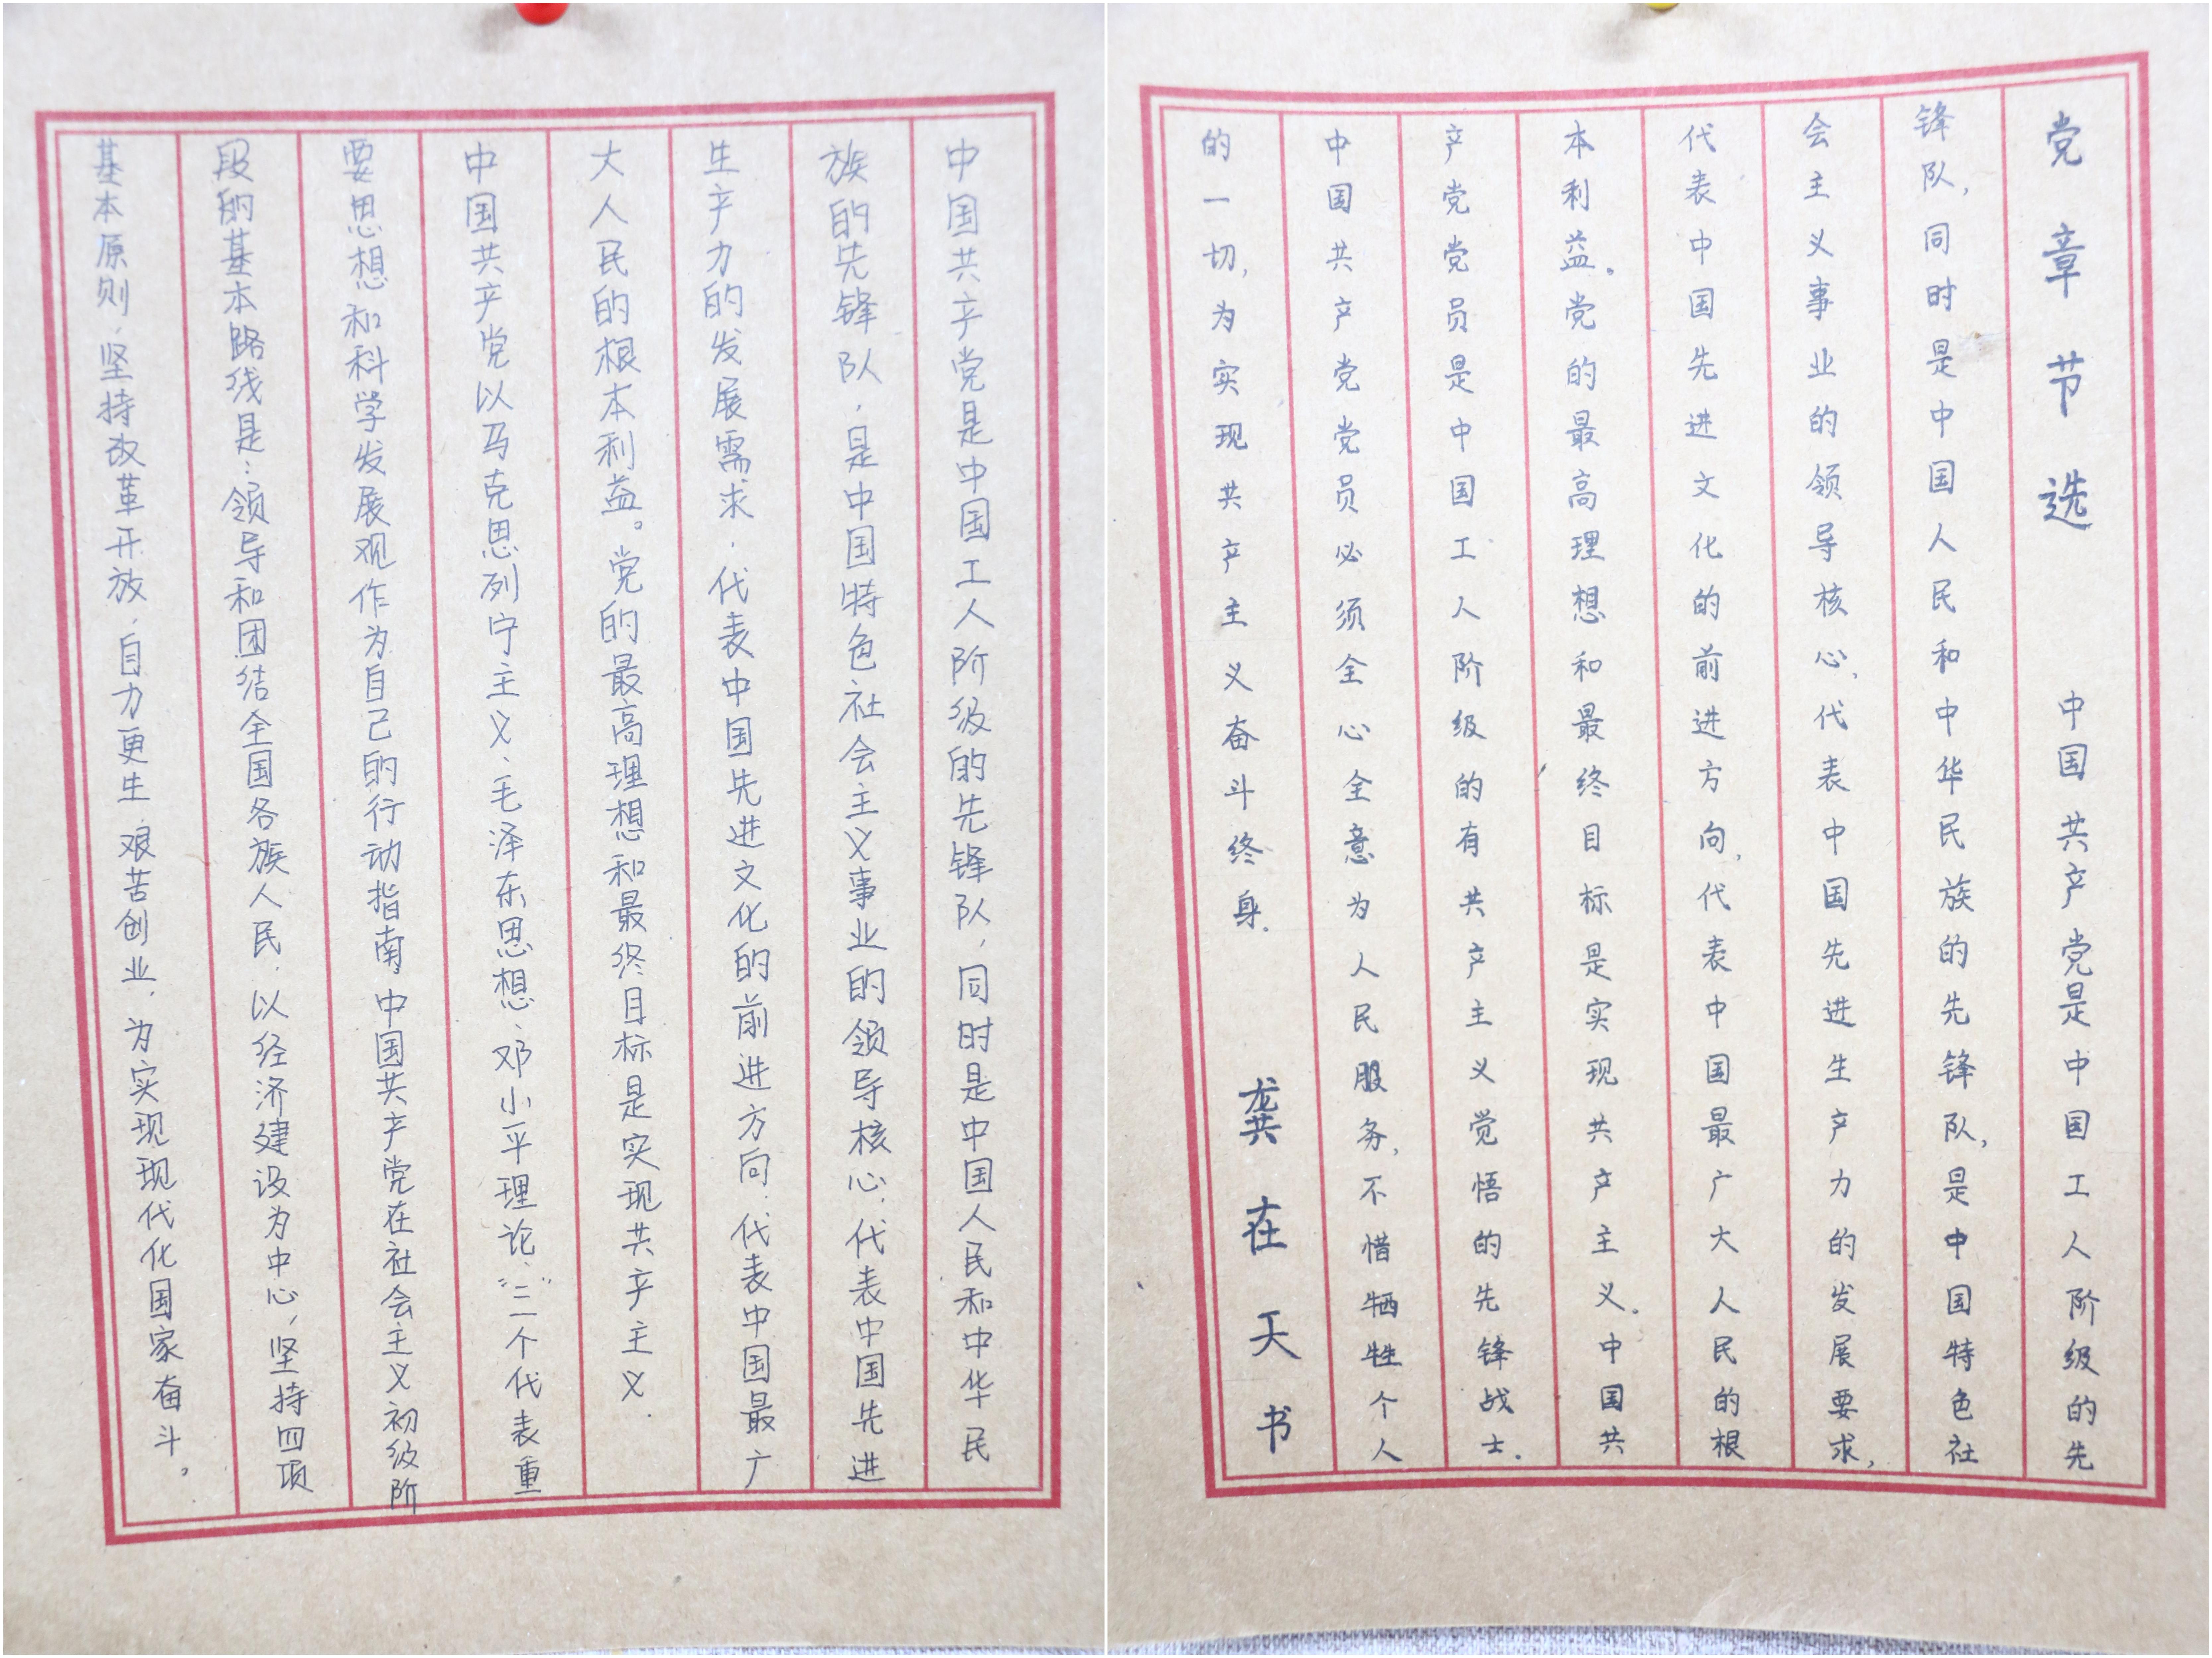 党章节选 中国共产党是中国工人阶级的先
锋队,同时是中国人民和中华民族的先锋队,是中国特色社
会主义事业的领导核心,代表中国先进生产力的发展要求,
代表中国先进文化的前进方向,代表中国最广大人民的根
本利益。党的最高理想和最终目标是实现共产主义。中国共
产党党员是中国工人阶级的有共产主义觉悟的先锋战士.
中国共产党党员必须全心全意为人民服务,不惜牺牲个人
的一切,为实现共产主义奋斗终身. 龚在天书
中国共产党是中国工人阶级的先锋队,同时是中国人民和中华民
族的先锋队,是中国特色社会主义事业的领导核心,代表中国先进
生产力的发展需求,代表中国先进文化的前进方向,代表中国最广
大人民的根本利益。党的最高理想和最终目标是实现共产主义.
中国共产党以马克思列宁主义、毛泽东思想、邓小平理论、“三”个代表重
要思想和科学发展观作为自己的行动指南,中国共产党在社会主义初级阶
段的基本路线是:领导和团结全国各族人民,以经济建设为中心,坚持四项
基本原则,坚持改革开放,自力更生,艰苦创业,为实现现代化国家奋斗。